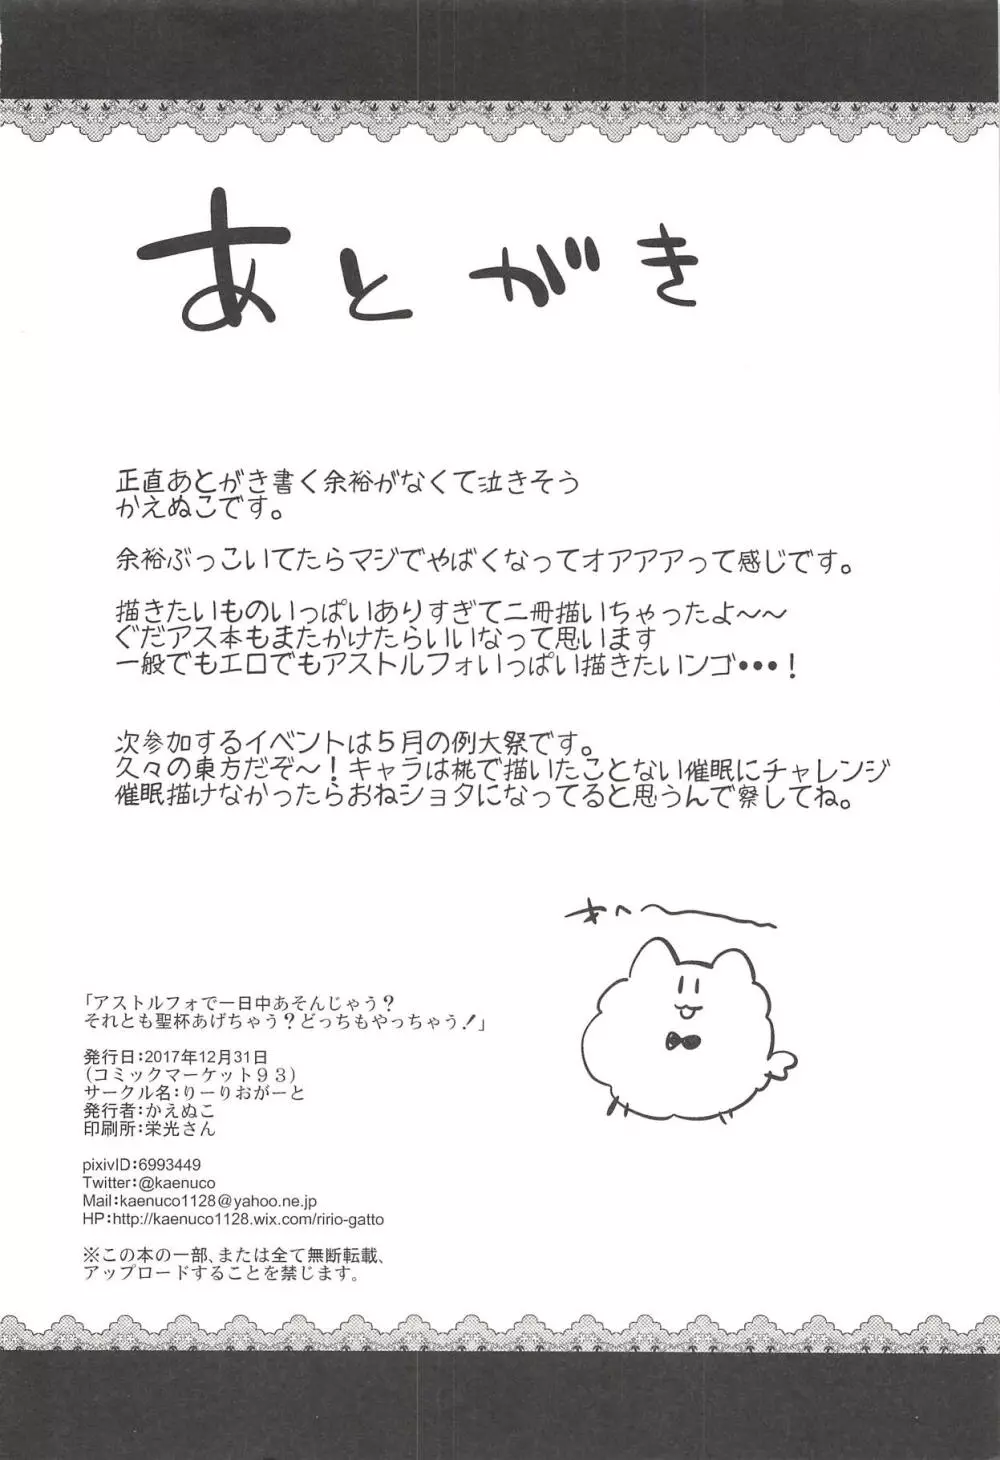 あとがき
正直あとがき書く余裕がなくて泣きそう
かえぬこです。
余裕ぶっこいてたらマジでやばくなってオアアアって感じです。
描きたいものいっぱいありすぎて二冊描いちゃったよ〜〜
ぐだアス本もまたかけたらいいなって思います
一般でもエロでもアストルフォいっぱい描きたいンゴ・・・！
次参加するイベントは５月の例大祭です。
久々の東方だぞ〜！キャラは桃で描いたことない催眠にチャレンジ
催眠描けなかったらおねショタになってると思うんで察してね。
「アストルフォで一日中あそんじゃう？
それとも聖杯あげちゃう？どっちもやっちゃう！」
発行日：2017年12月31日
（コミックマーケット９３）
サークル名：りーりおがーと
発行者：かえぬこ
印刷所：栄光さん
pixivID：6993449
Twitter：@kaenuco
Mail：kaenuco1128@yahoo.ne.jp
HP：http://kaenuco1128.wix.com/ririo-gatto
※この本の一部、または全て無断転載、
アップロードすることを禁じます。